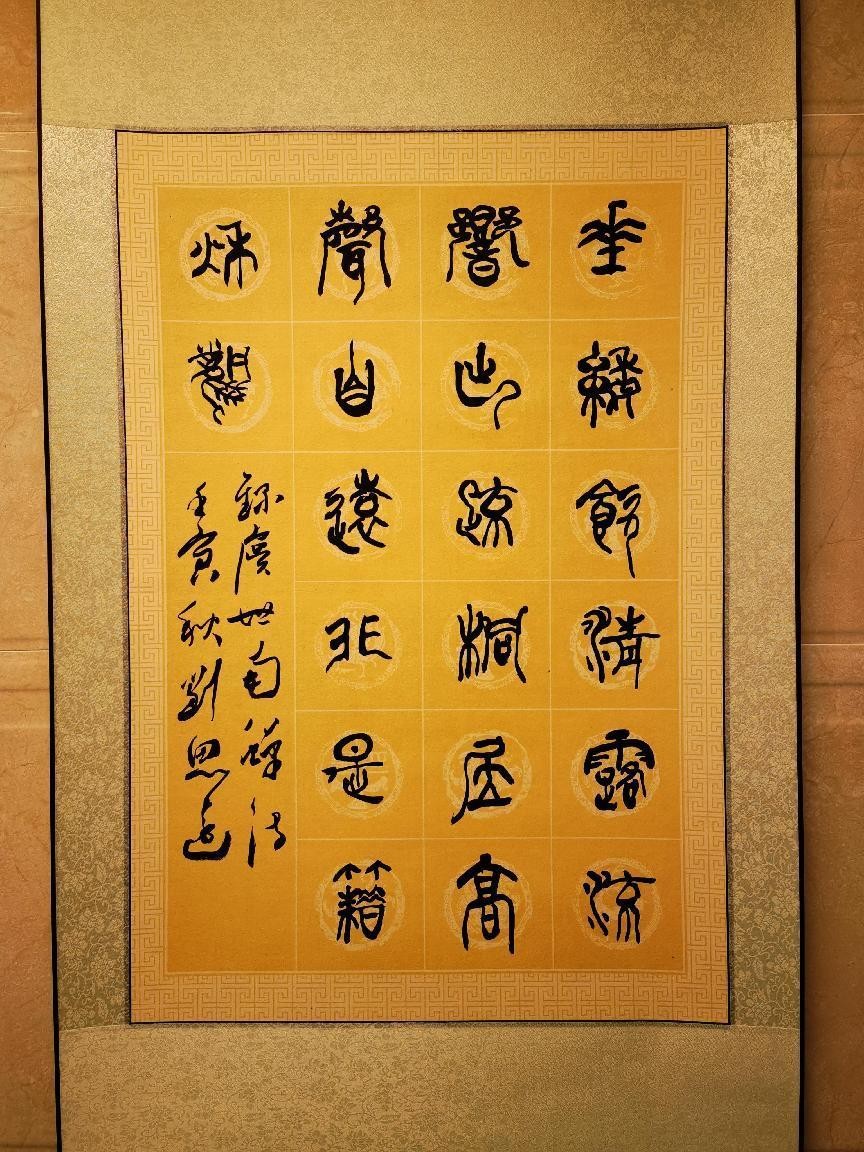 垂緌飲清露流
響出疏桐居高
聲自遠非是籍
秋風
錄虞世南蟬詩
壬寅秋劉思